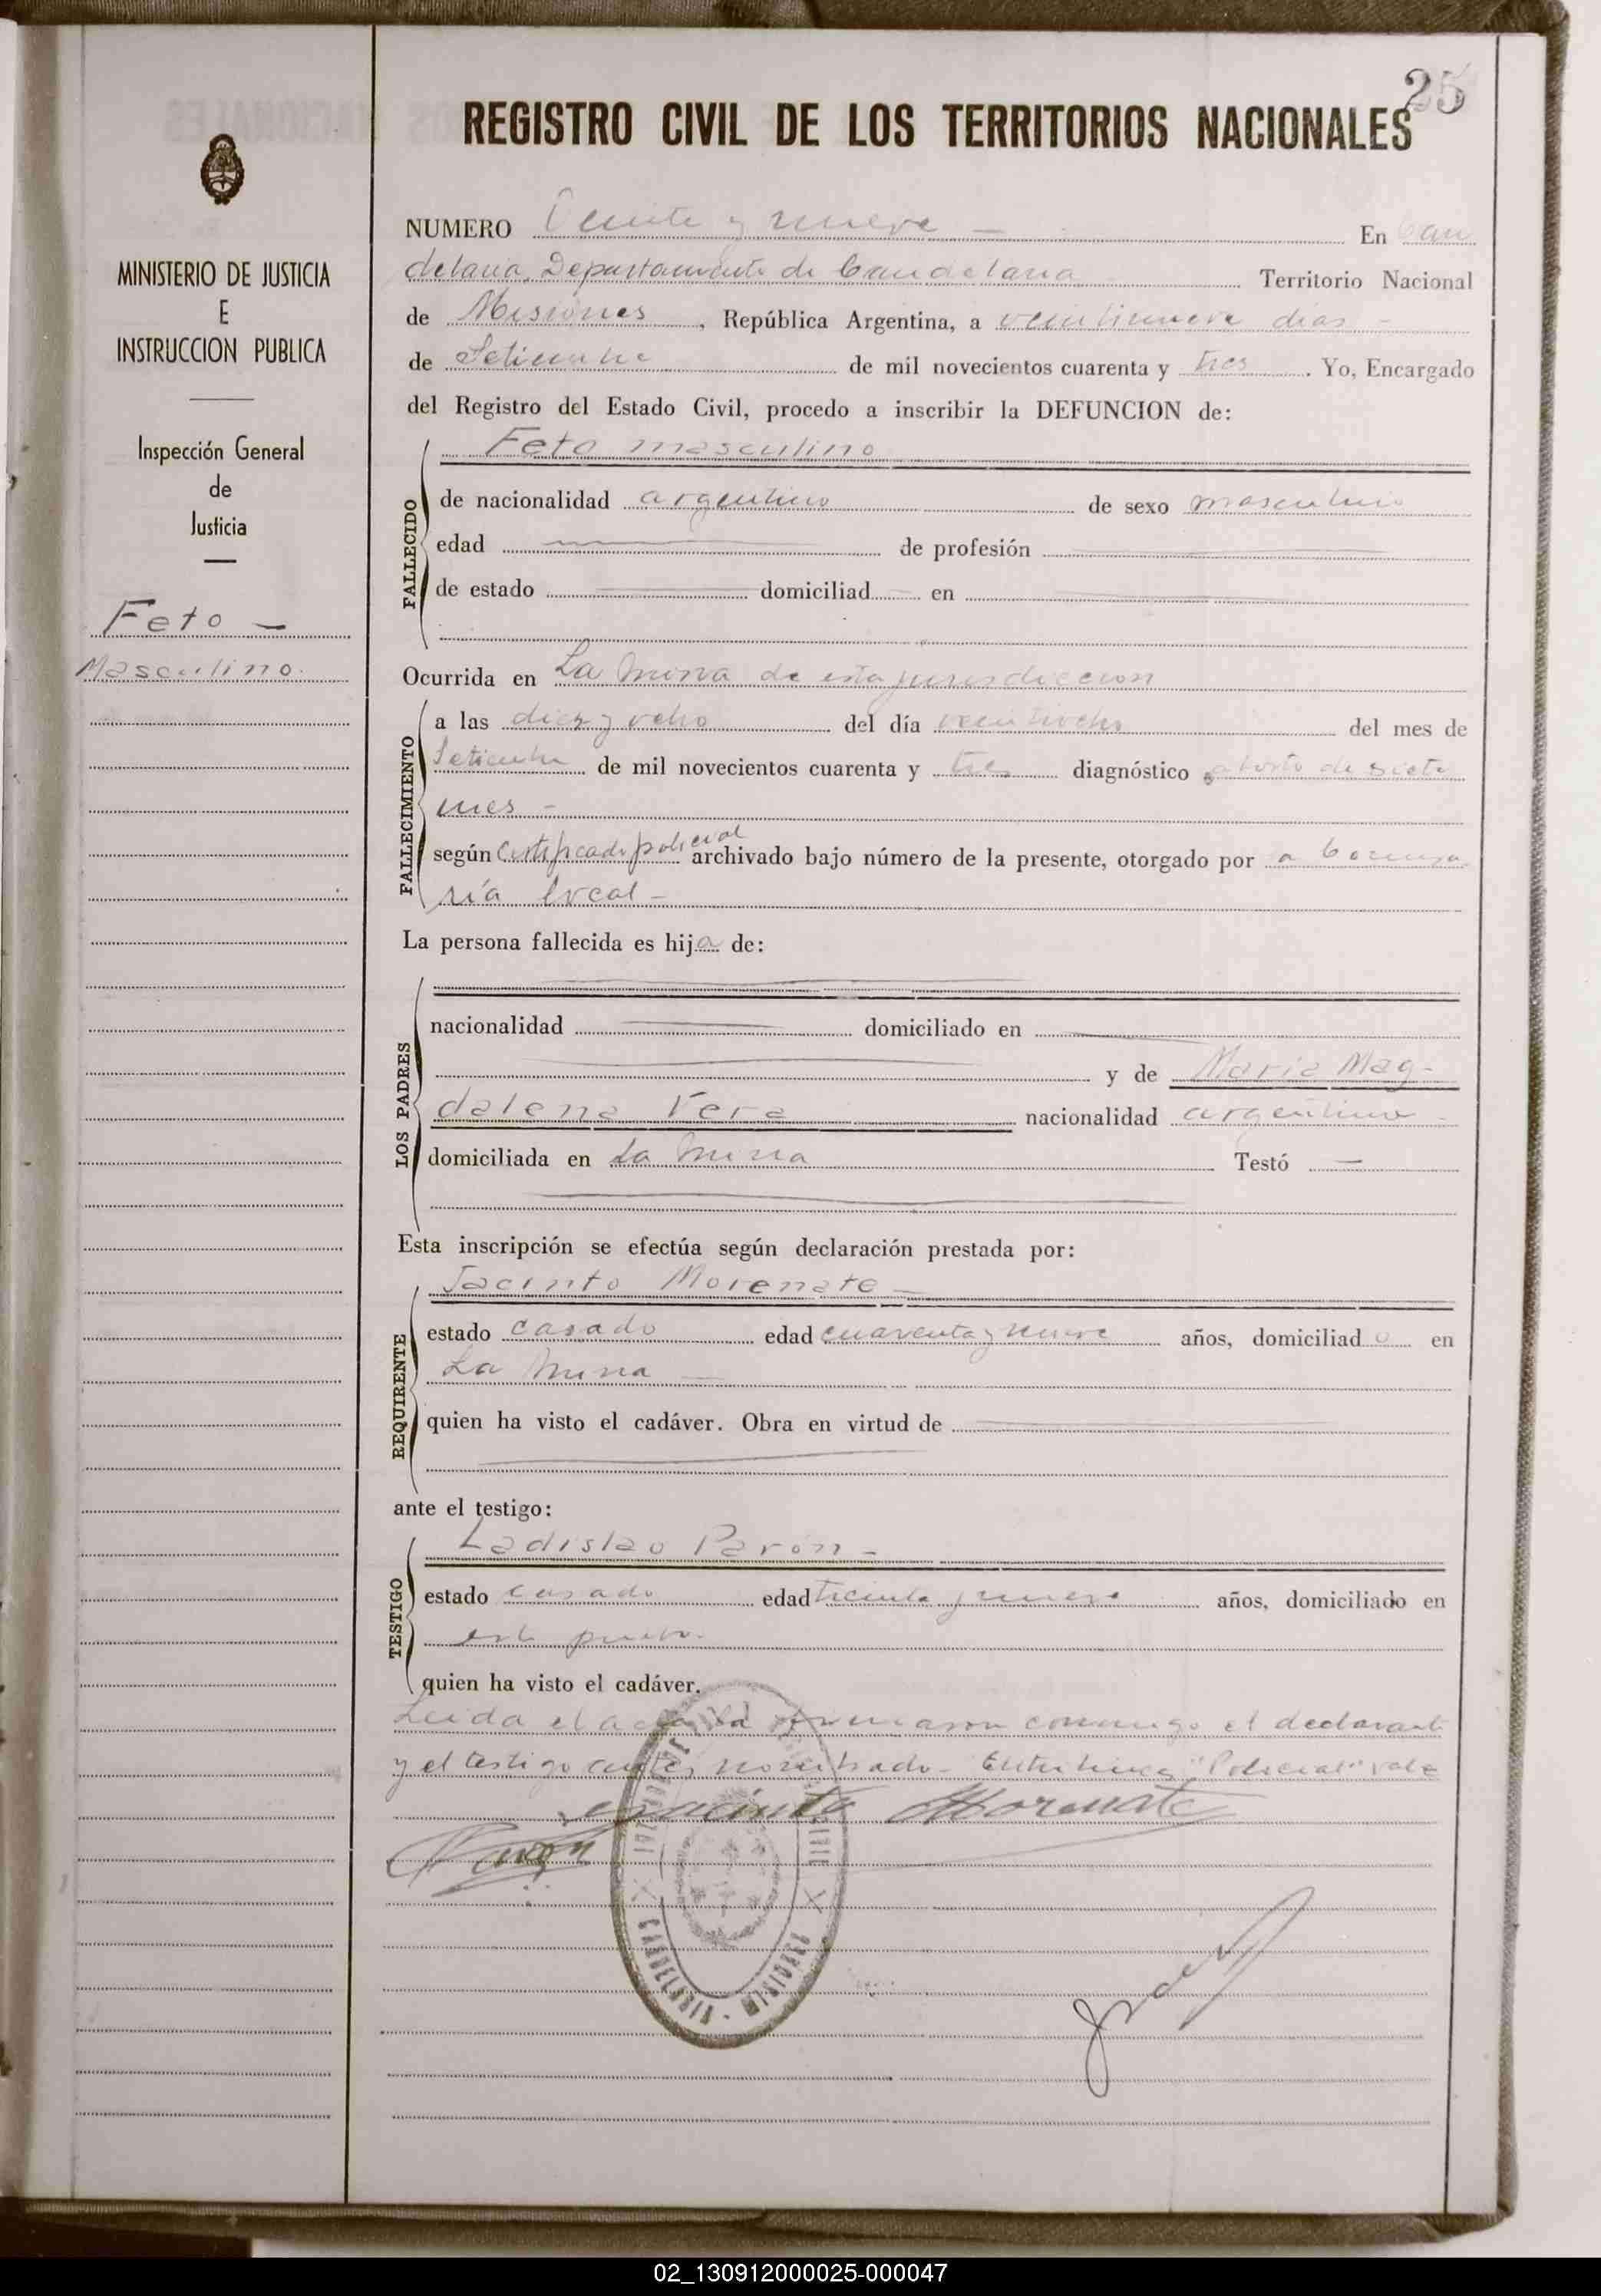 25
REGISTRO CIVIL DE LOS TERRITORIOS NACIONALES
MINISTERIO DE JUSTICIA
E
INSTRUCCION PUBLICA
Inspección General
de
Justicia
Feto -
Masculino.
NUMERO Veinte y nueve - En Can
delaria, Departamento de Candelaria Territorio Nacional
de Misiones, República Argentina, a veintinueve dias -
de Setiembre de mil novecientos cuarenta y tres. Yo, Encargado
del Registro del Estado Civil, procedo a inscribir la DEFUNCION de:
Feto masculino
FALLECIDO
de nacionalidad argentino de sexo masculino
edad de profesión
de estado domiciliad en
Ocurrida en La Mina de esta jurisdiccion
FALLECIMIENTO
a las diez y ocho del día veintiocho del mes de
Setiembre de mil novecientos cuarenta y tres diagnóstico aborto de siete
mes -
policial
según Certificado archivado bajo número de la presente, otorgado por a Comisa
ría local -
La persona fallecida es hijo de:
LOS PADRES
nacionalidad domiciliado en
y de Maria Mag-
dalena Vera nacionalidad argentina -
domiciliada en La Mina Testó -
Esta inscripción se efectúa según declaración prestada por:
Jacinto Morenate -
REQUIRENTE
estado casado edad cuarenta y nueve años, domiciliado en
La Mina -
quien ha visto el cadáver. Obra en virtud de
ante el testigo:
Ladislao Parón -
TESTIGO
estado casado edad treinta y nueve años, domiciliado en
este
quien ha visto el cadáver.
Leida el acta la firmaron conmigo el declarante
y el testigo antes nombrado - Entre linea "Policial" vale
Jacinto Morenate
Parón
CANDELARIA - MISIONES
02_130912000025-000047